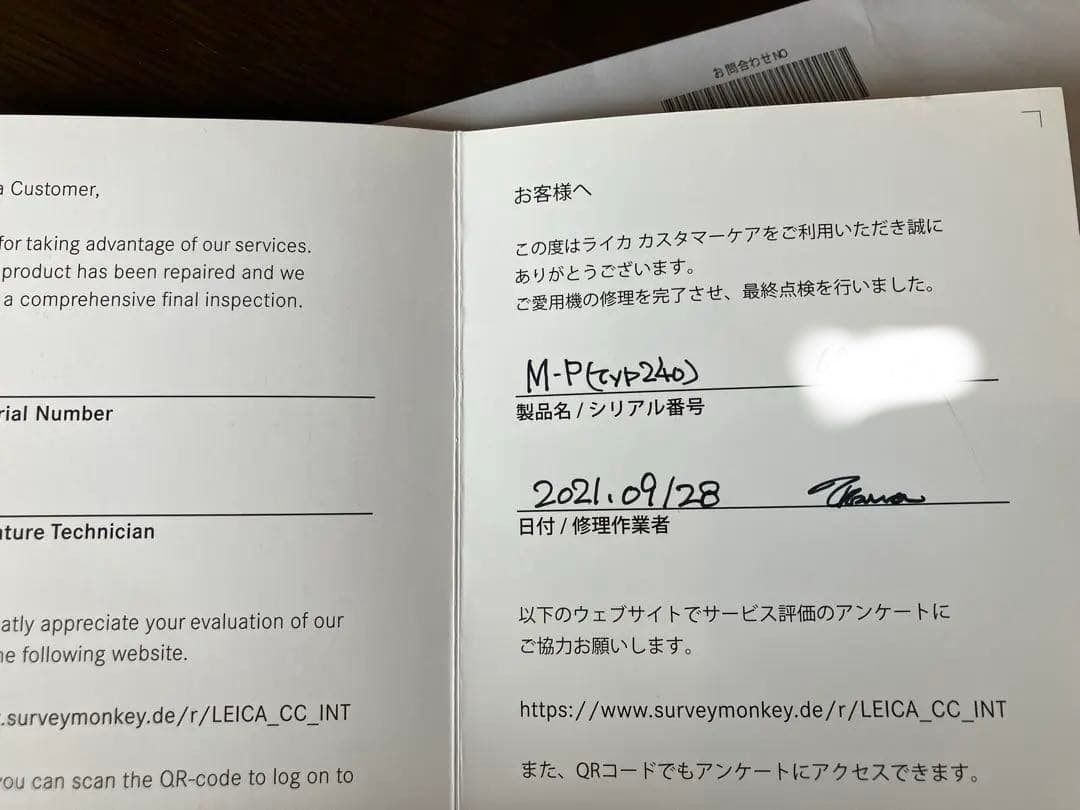 お問合わせNO
a Customer,
for taking advantage of our services.
product has been repaired and we
a comprehensive final inspection.
rial Number
ture Technician
atly appreciate your evaluation of our
he following website.
.surveymonkey.de/r/LEICA_CC_INT
you can scan the QR-code to log on to
お客様へ
この度はライカ カスタマーケアをご利用いただき誠に
ありがとうございます。
ご愛用機の修理を完了させ、最終点検を行いました。
M-P(Typ240)
製品名 / シリアル番号
2021.09/28
日付 / 修理作業者
以下のウェブサイトでサービス評価のアンケートに
ご協力お願いします。
https://www.surveymonkey.de/r/LEICA_CC_INT
また、QRコードでもアンケートにアクセスできます。